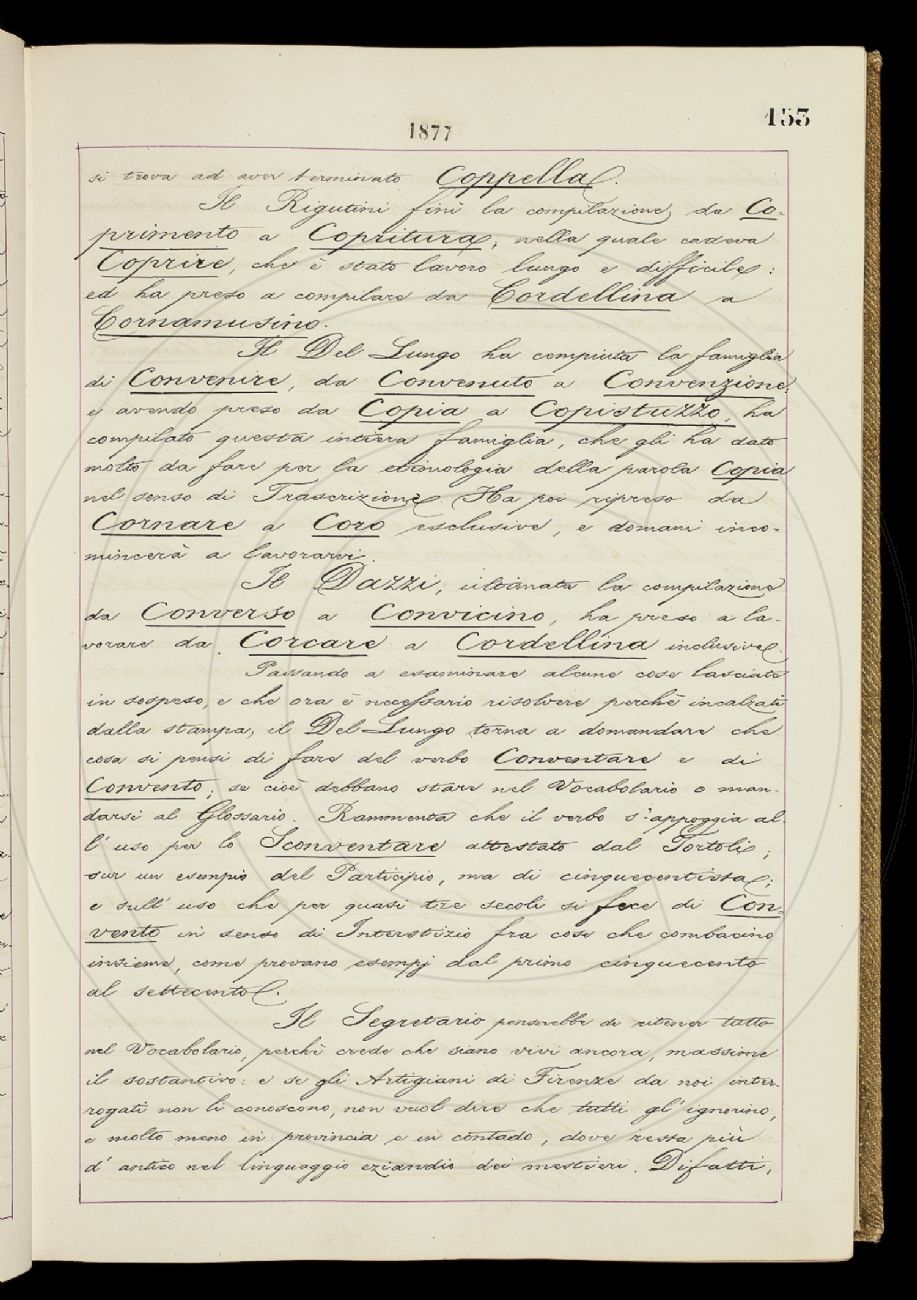 1877
153
si trova ad aver terminato Coppella.
Il Rigutini finì la compilazione da Co-
primento a Copritura, nella quale cadeva
Coprire, che è stato lavoro lungo e difficile:
ed ha preso a compilare da Cordellina a
Cornamusino.
Il Del Lungo ha compiuta la famiglia
di Convenire, da Convenuto a Convenzione;
e avendo preso da Copia a Copistuzzo, ha
compilato questa intiera famiglia, che gli ha dato
molto da fare per la etimologia della parola Copia
nel senso di Trascrizione. Ha poi ripreso da
Cornare a Coro esclusive, e domani inco-
mincerà a lavorarvi.
Il Dazzi, ultimata la compilazione
da Converso a Convicino, ha preso a la-
vorare da Corcare a Cordellina inclusive.
Passando a esaminare alcune cose lasciate
in sospeso, e che ora è necessario risolvere perchè incalzati
dalla stampa, il Del Lungo torna a domandare che
cosa si pensi di fare del verbo Conventare e di
Convento; se cioè debbano stare nel Vocabolario o man-
darsi al Glossario. Rammenta che il verbo s'appoggia al-
l'uso per lo Sconventare attestato dal Tortoli;
sur un esempio del Participio, ma di cinquecentista;
e sull'uso che per quasi tre secoli si fece di Con-
vento in senso di Interstizio fra cose che combacino
insieme, come provano esempj dal primo cinquecento
al settecento.
Il Segretario penserebbe di ritener tutto
nel Vocabolario, perchè crede che siano vivi ancora, massime
il sostantivo: e se gli Artigiani di Firenze da noi inter-
rogati non li conoscono, non vuol dire che tutti gl'ignorino,
e molto meno in provincia e in contado, dove resta più
d'antico nel linguaggio eziandio dei mestieri. Difatti,